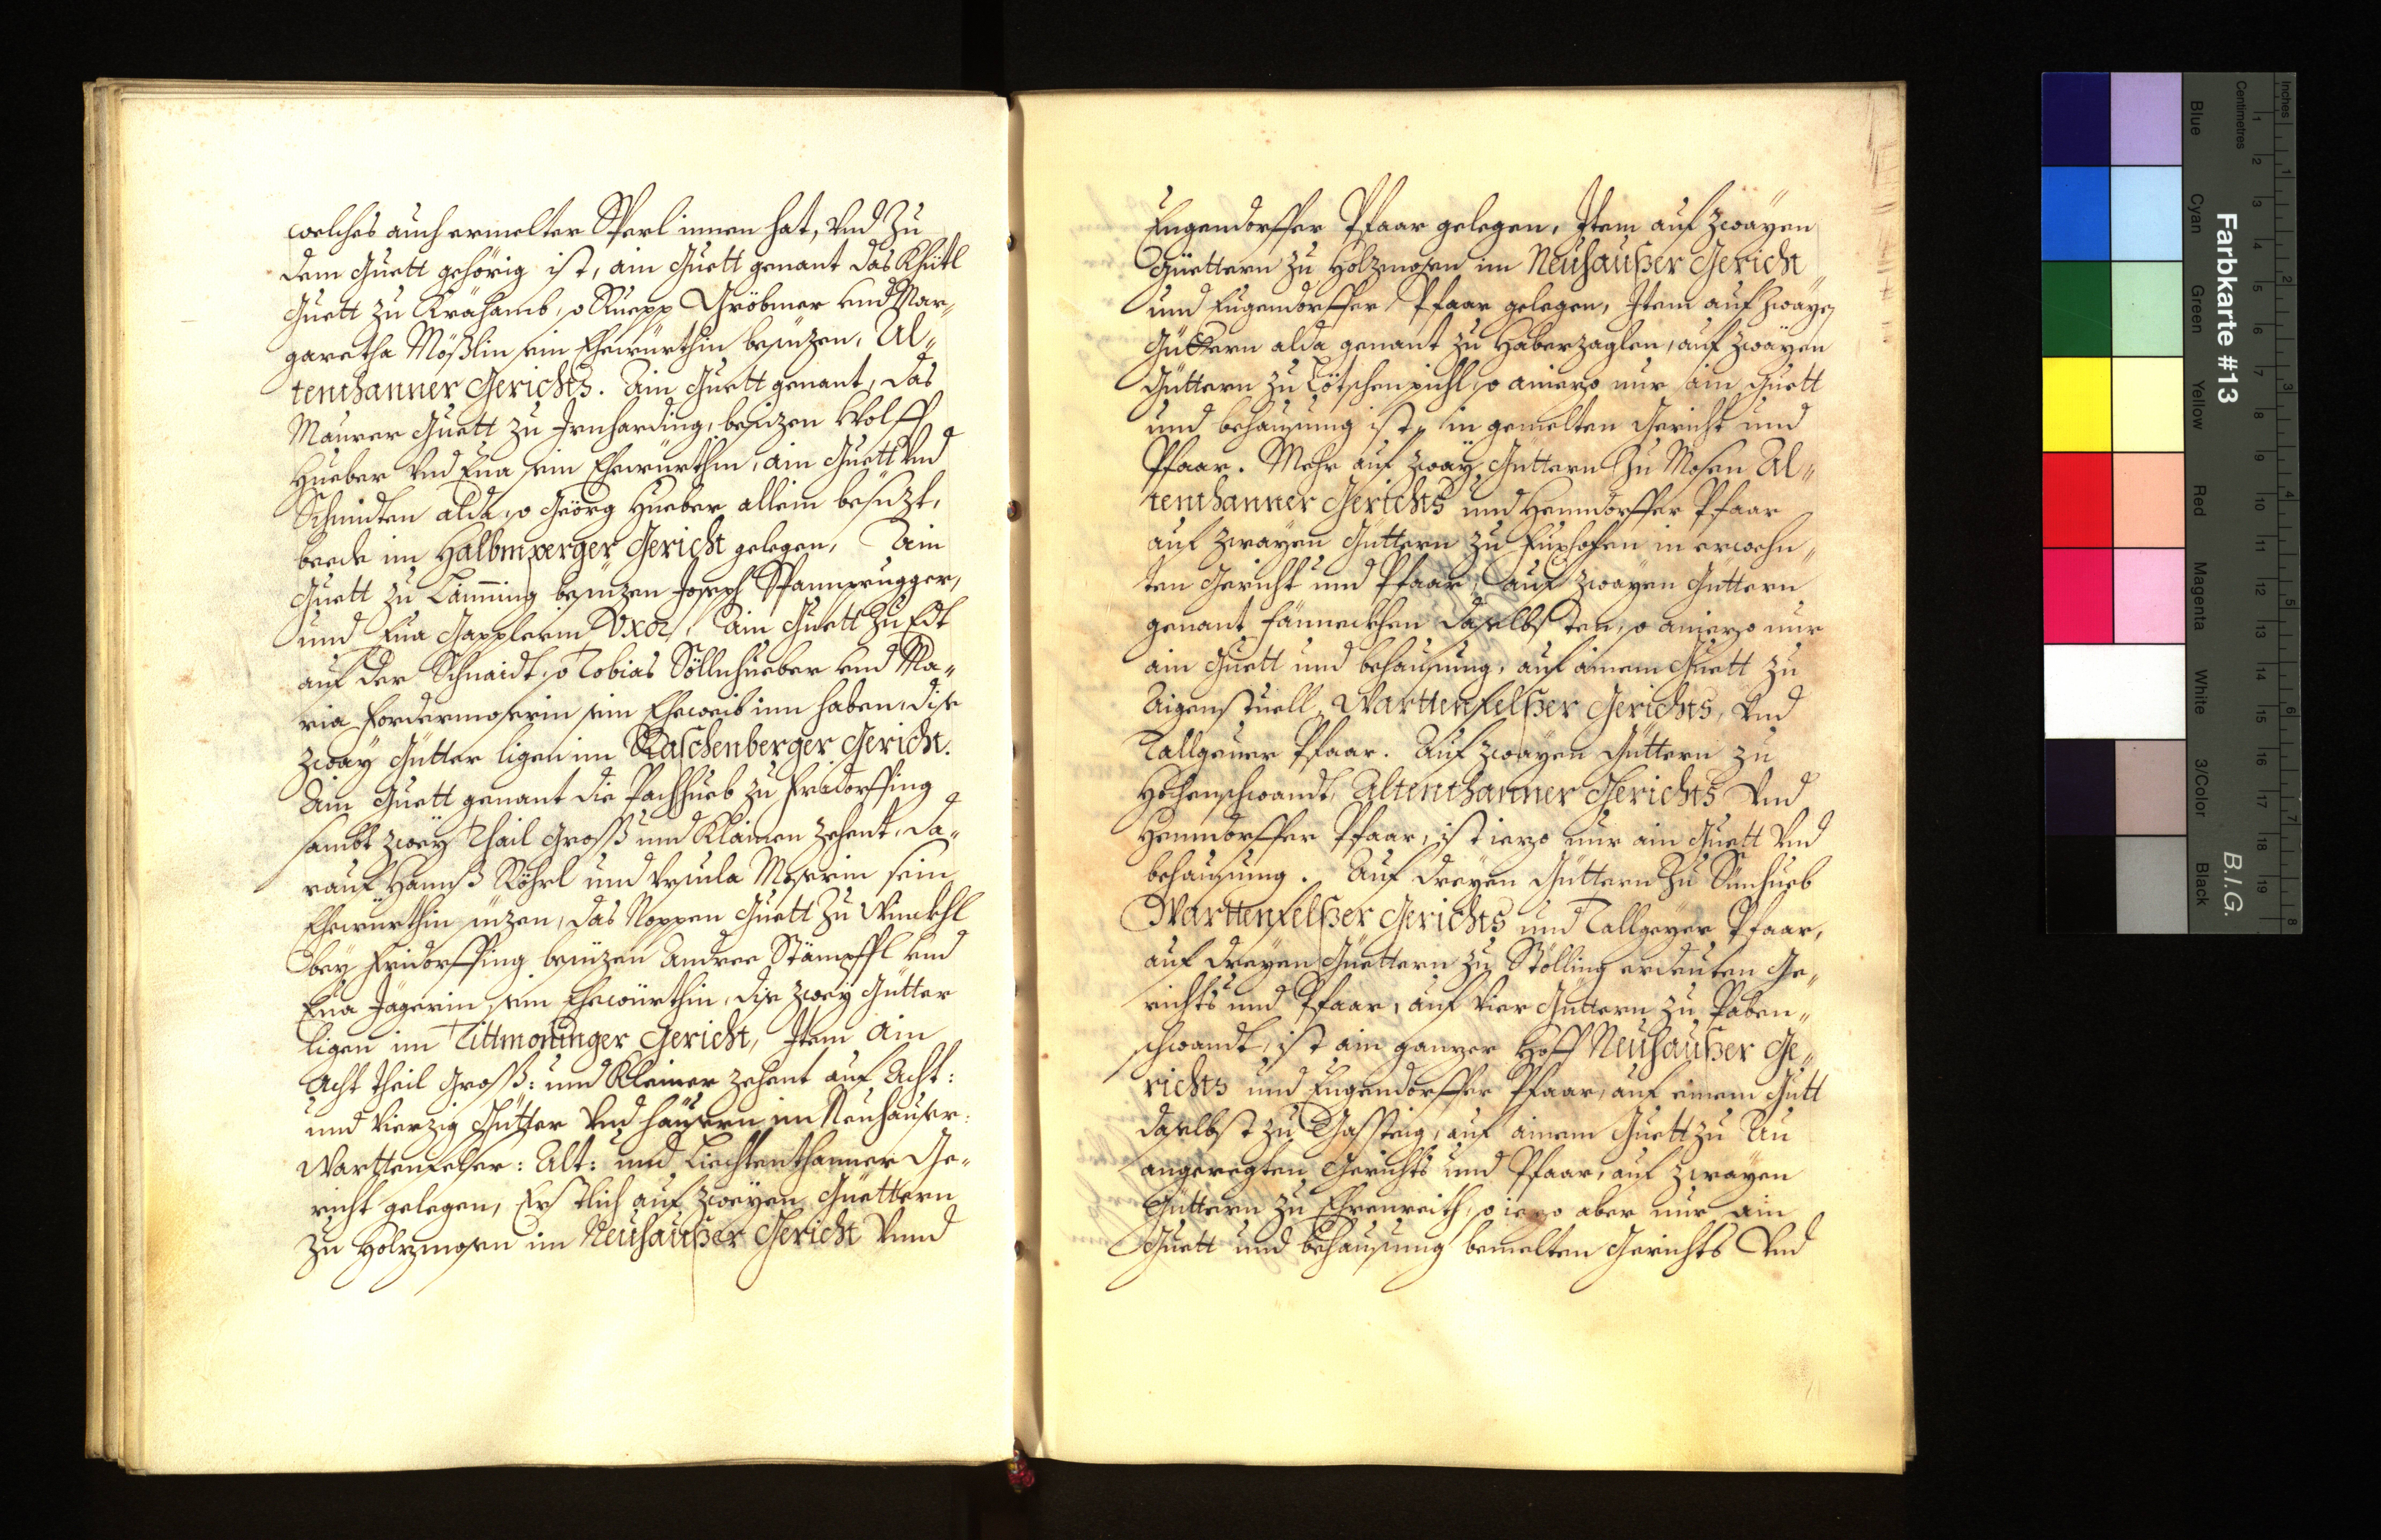 welches auch ermelter Sperl innen hat, vnd zu
dem Guett gehörig ist, ain Guett genant das Khittl
Guett zu Krähamb, so Ruepp Gröbmer vnd Mar„
garetha Mößlin sein Ehewürthin besüzen, Al„
tenthanner Gerichts. Ain Guett genant, das
Maurer Guett zu Irnharding, besizen Wolff
Hueber vnd Eua sein Ehewürthin, ain Guett vnd
Schmidten alda, so Geörg Hueber allein besüzt,
beede im Halbmperger Gericht gelegen, Ain
Guett zu Läming besüzen Joseph Spannprugger,
und Eua Gapplerin Vxor, Ain Guett zu Edt
auf der Schnaidt, so Tobias Söllnhueber vnd Ma„
ria Fordermoserin sein Eheweib inn haben, dise
zway Gütter ligen im Raschenberger Gericht.
Ain Guett genant die Pachhueb zu Fridorffing
sambt zwey Thail Groß und Klainen Zehent, da„
rauf Hannß Röhrl und Vrsula Moserin sein
Ehewürthin sizen, das Noppen Guett zu Winckhl
bey Fridorffing besüzen Andree Stämpffl vnd
Eua Jägerin sein Ehewürthin, dise zwey Gütter
ligen im Tittmoninger Gericht, Item ain
Acht Theil Groß: und Kleiner Zehent auf Acht:
und Vierzig Gütter vnd häusern im Neuhauser:
Warttenfelser: Alt: und Liechtenthanner Ge„
richt gelegen, Erstlich auf zweyen Guettern
zu Holzmosen im Neuhaußer Gericht vnnd
Eugendorffer Pfaar gelegen, Item auf zwayen
Güettern zu Holzmosen im Neuhaußer Gericht
und Eugendorffer Pfaar gelegen, Item auf zwayen
Güttern alda genant zu Haberzaglen, auf zwayen
Güttern zu Götschenpichl, so aniezo nur ain Guett
und behausung ist, in gemelten Gericht und
Pfaar. Mehr auf zway Güttern zu Mosen Al„
tenthanner Gerichts und Henndorffer Pfaar
auf zwayen Güttern zu Fuxhofen in erwehn„
ten Gericht und Pfaar, auf zwayen Güttern
genant Fänneckhen daselbsten, so aniezo nur
ain Guett und behausung, auf ainem Guett zu
Aigenstuell, Warttenfelßer Gerichts, vnd
Tallgeuer Pfaar. Auf zwayen Güttern zu
Hochenschwandt, Altenthanner Gerichts vnd
Henndorffer Pfaar, ist iezo nur ain Guett vnd
behausung. Auf dreyen Güttern zu Sinhueb
Warttenfelßer Gerichts und Tallgeyer Pfaar,
auf dreyen Güettern zu Stölling erdeuten Ge„
richts und Pfaar, auf Vier Güttern zu Paben„
schwandt, ist ain ganzer Hoff Neuhaußer Ge„
richts und Eugendorffer Pfaar, auf einem Gütt
daselbst zu Gassteig, auf ainem Guett zu Au
angeregten Gerichts und Pfaar, auf zwayen
Güttern zu Ehrenreith, so iezo aber nur ain
Guett und behausung bemelten Gerichts vnd
Farbkarte #13
B.I.G.
Inches
Centimetres
Blue
Cyan
Green
Yellow
Red
Magenta
White
3/Color
Black